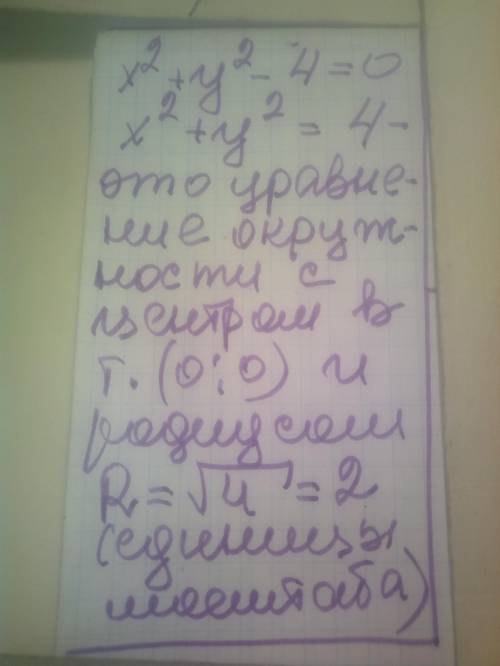 x² + y² - 4 = 0
x² + y² = 4 -
это уравне-
ние окруж-
ности с
центром в
т. (0; 0) и
радиусом
R = √4 = 2
(единицы
масштаба)